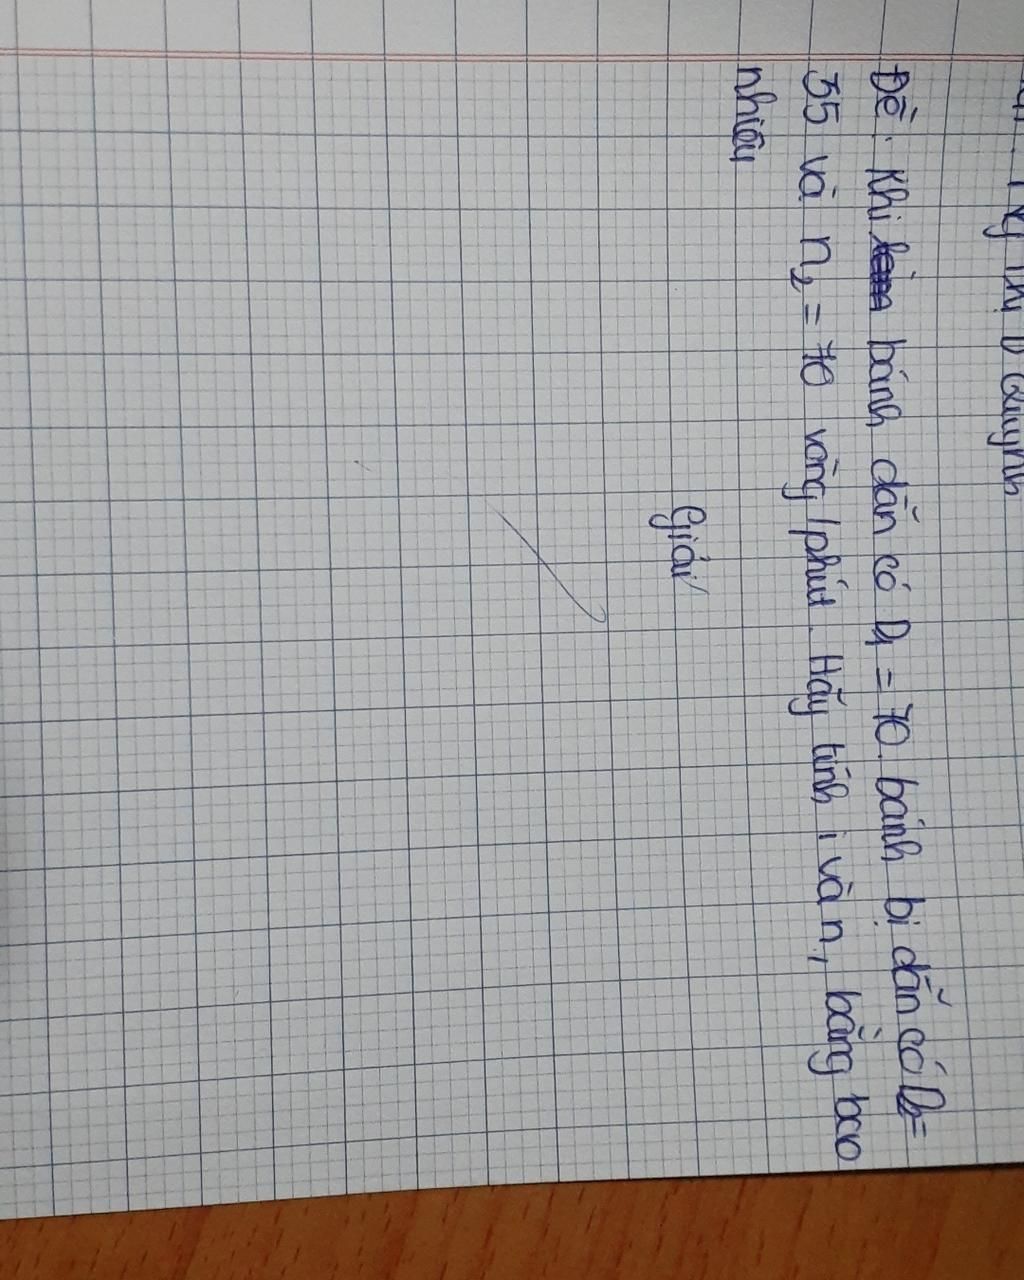 Thị D Quỳnh
Đề: Khi bánh dẫn có D1 = 70. bánh bị dẫn có D2=
35 và n2 = 70 vòng/phút. Hãy tính i và n1 bằng bao
nhiêu
Giải